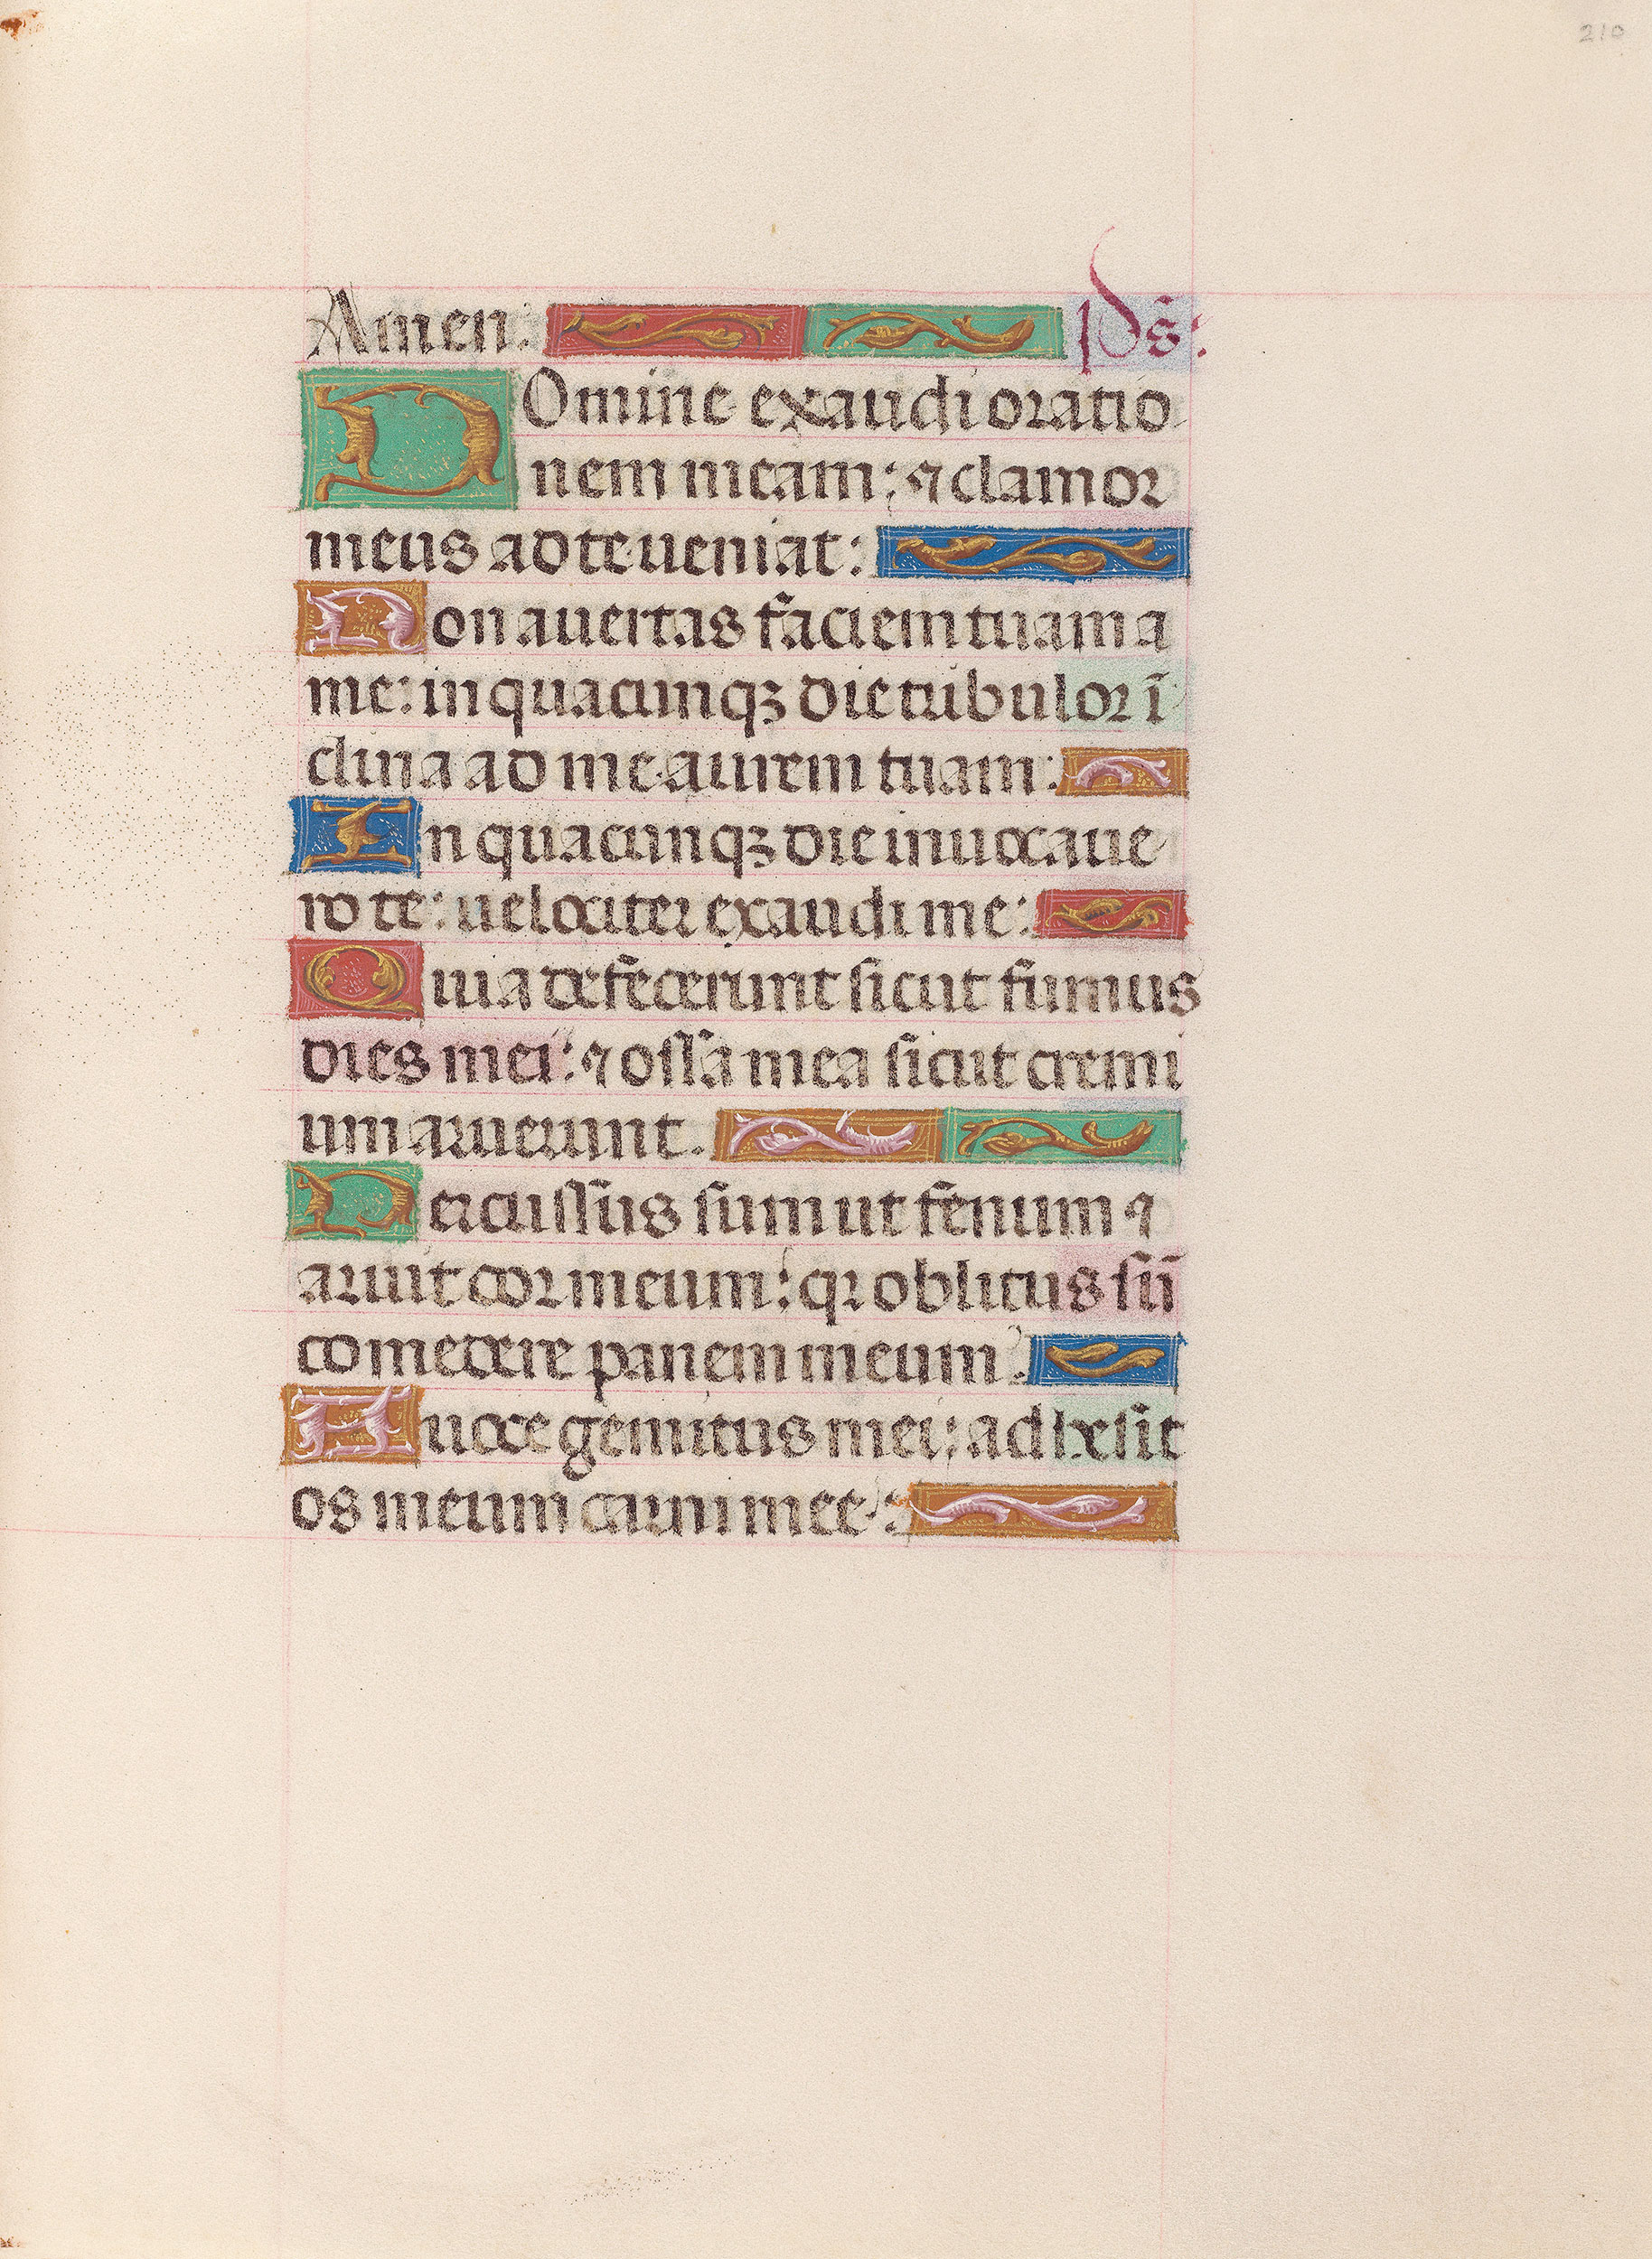 210
Amen. ps̄:
DOmine exaudi oratio
nem meam: ⁊ clamor
meus ad te ueniat:
Non auertas faciem tuam a
me: in quacunqꝫ die tribulor ī
clina ad me aurem tuam:
In quacunqꝫ die inuocaue
ro te: uelociter exaudi me:
Quia defecerunt sicut fumus
dies mei: ⁊ ossa mea sicut cremi
um aruerunt.
Percussus sum ut fenum ⁊
aruit cor meum: qꝛ oblitus sū
comedere panem meum.
A uoce gemitus mei: adhesit
os meum carni mee: